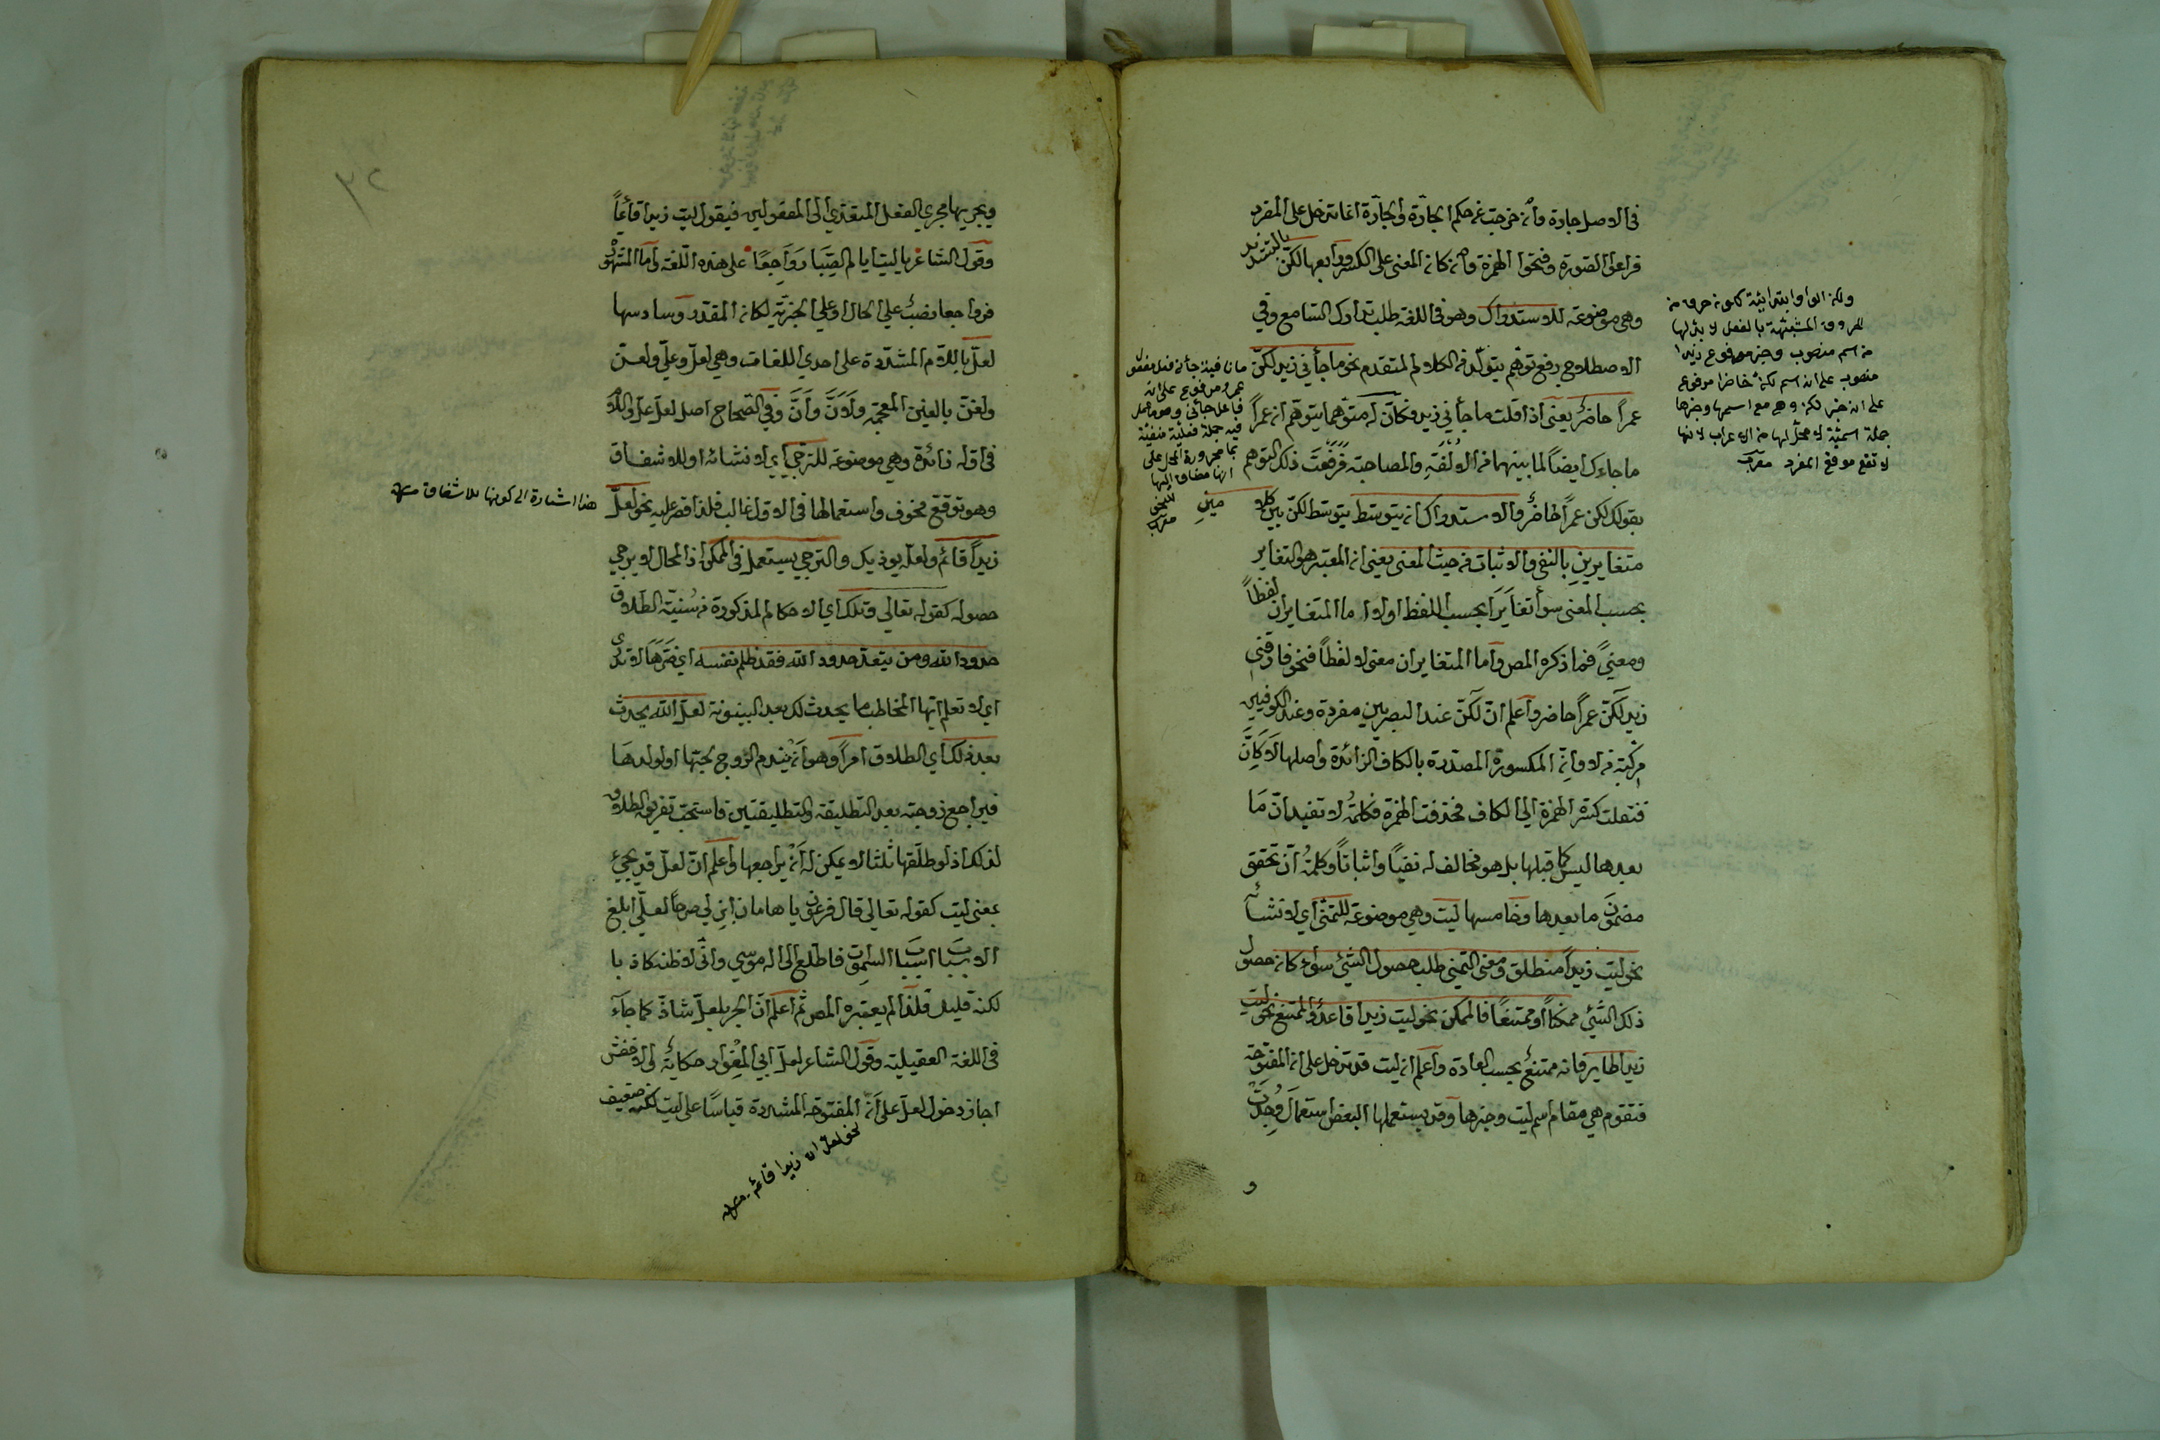 في الاصل جارة وان خرجت عن حكم الجارة والجارة انما تدخل على المفرد
فراعوا الصورة وفتحوا الهمزة وان كان المعنى على الكسر ورابعها لكنّ بالتشديد
وهي موضوعة للاستدراك وهو في اللغة طلب تدارك السامع وفي
الاصطلاح رفع توهم يتولد من الكلام المتقدم نحو ما جأني زيد لكنّ
عمراً حاضرٌ يعنى اذا قلت ما جأني زيد فكانّه متوهما يتوهم ان عمراً
ما جاءك ايضاً لما بينهما من الالفة والمصاحبة فرفعت ذلك التوهم
بقولك لكن عمراً حاضرٌ والاستدراك انه يتوسط يتوسط لكن بين كلامين
متغايرين بالنفي والاثبات من حيث المعنى يعني ان المعتبر هو التغاير
بحسب المعنى سوأ تغايرا بحسب اللفظ اولا اما المتغايران لفظاً
ومعنىً فما ذكره المص واما المتغايران معنى لا لفظاً فنحو فارقني
زيد لكنّ عمراً حاضر واعلم انّ لكنّ عند البصريين مفردة وعند الكوفيين
مركبة من لا وانّ المكسورة المصدرة بالكاف الزائدة واصلها لا كانّ
فنقلت كسرة الهمزة الى الكاف فحذفت الهمزة فكلمة لا تفيد انّ ما
بعدها ليس كما قبلها بل هو مخالف له نفياً واثباتاً وكلمة انّ تحقق
مضمون ما بعدها وخامسها ليت وهي موضوعة للتمني اي لانشائه
نحو ليت زيداً منطلق ومعنى التمني طلب حصول الشئ سواء كان حصول
ذلك الشئ ممكناً او ممتنعاً فالممكن نحو ليت زيدا قاعد والممتنع نحو ليت
زيدا طاير فانه ممتنع بحسب العادة واعلم ان ليت قد تدخل على انّ المفتوحة
فتقوم هي مقام اسم ليت وخبرها وقد يستعملها البعض استعمال وجدت
و
ولكن الواو ابتدائية لكونه حرف من
الحروف المشبهة بالفعل لا بد لها
من اسم منصوب وخبر مرفوع زيدا
منصوب على انه اسم لكن حاضر مرفوع
على انه خبر لكن وهي مع اسمها وخبرها
جملة اسمية لا محل لها من الاعراب لانها
لا تقع موقع المفرد معرب
ما نافية جأني فعل مفعول
عمرو مرفوع على انه
فاعل جأني وهو مع
فيه جملة فعلية منفية
بما مجرورة المحل على
انها مضاف اليها
لنحو
معرب
ويجريها مجرى الفعل المتعدي الى المفعولين فيقول ليت زيدا قائماً
وقول الشاعر يا ليت ايام الصِّبا رواجعًا على هذه اللغة واما المشهور
فرواجعا نصب على الحال او على الخبرية لكان المقدر وسادسها
لعلّ باللام المشددة على احدى اللغات وهي لعلّ وعلّ ولعنّ
ولغنّ بالغين المعجمة ولأنّ وأنّ وفي الصحاح اصل لعل علّ واللام
في اوله زائدة وهي موضوعة للترجي اي لانشائه او للاشفاق
وهو توقع مخوف واستعمالها في الاول غالب فلذا اقتصر عليه نحو لعلّ
زيداً قائم ولعله يوذيك والترجي يستعمل في الممكن اذ المحال لا يرجى
حصوله كقوله تعالى وتلك اي الاحكام المذكورة من سنية الطلاق
حدود الله ومن يتعدّ حدود الله فقد ظلم نفسه اي ضرها لا تدرى
اي لا تعلم ايها المخاطب ما يحدث لك بعد البينونة لعلّ الله يحدث
بعد ذلك اي الطلاق امراً وهو ان يندم الزوج لمحبتها او لولدها
فيراجع زوجته بعد التطليقة والتطليقتين فاستحب تفريق الطلاق
لذلك اذ لو طلقها ثلثا لا يمكن له ان يراجعها واعلم انّ لعلّ قد يجئ
بمعنى ليت كقوله تعالى قال فرعون يا هامان ابن لي صرحاً لعلّي ابلغ
الاسباب اسباب السموت فاطلع الى اله موسى وانّي لاظنه كاذبا
لكنه قليل فلذا لم يعتبره المص ثم اعلم انّ الجر بلعلّ شاذ كما جاء
في اللغة العقيلية وقول الشاعر لعلّ ابي المغوار حكاية لى الاخفش
اجاز دخول لعلّ على انّ المفتوحة المشددة قياسًا على ليت لكنه ضعيف
نحو لعل ان زيدا قائم
هذا اشارة الى كونها للاشفاق
٣٢